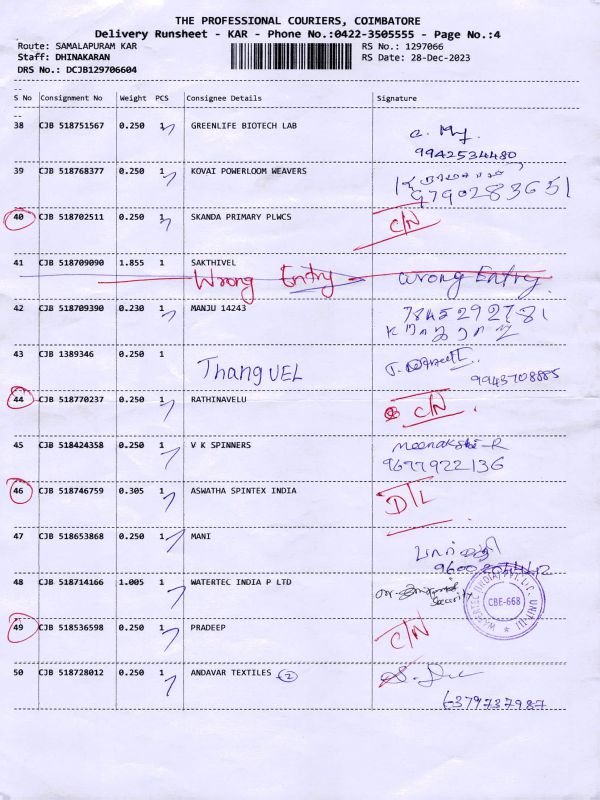 THE PROFESSIONAL COURIERS, COIMBATORE
Delivery Runsheet - KAR - Phone No.:0422-3505555 - Page No.:4
Route: SAMALAPURAM KAR RS No.: 1297066
Staff: DHINAKARAN RS Date: 28-Dec-2023
DRS No.: DCJB129706604
S No Consignment No Weight PCS Consignee Details Signature
38 CJB 518751567 0.250 1 GREENLIFE BIOTECH LAB
9942534480
39 CJB 518768377 0.250 1 KOVAI POWERLOOM WEAVERS
9790283651
40 CJB 518702511 0.250 1 SKANDA PRIMARY PLWCS C/N
41 CJB 518709090 1.855 1 SAKTHIVEL
Wrong Entry wrong Entry
42 CJB 518709390 0.230 1 MANJU 14243 7845292781
43 CJB 1389346 0.250 1
ThangVEL
9943708885
44 CJB 518770237 0.250 1 RATHINAVELU C/N
45 CJB 518424358 0.250 1 V K SPINNERS meenakshi-R
9677922136
46 CJB 518746759 0.305 1 ASWATHA SPINTEX INDIA D/L
47 CJB 518653868 0.250 1 MANI
48 CJB 518714166 1.005 1 WATERTEC INDIA P LTD
Security
WATERTEC (INDIA) PVT. LTD. UNIT-III
CBE-668
49 CJB 518536598 0.250 1 PRADEEP C/N
50 CJB 518728012 0.250 1 ANDAVAR TEXTILES 2
6379737987